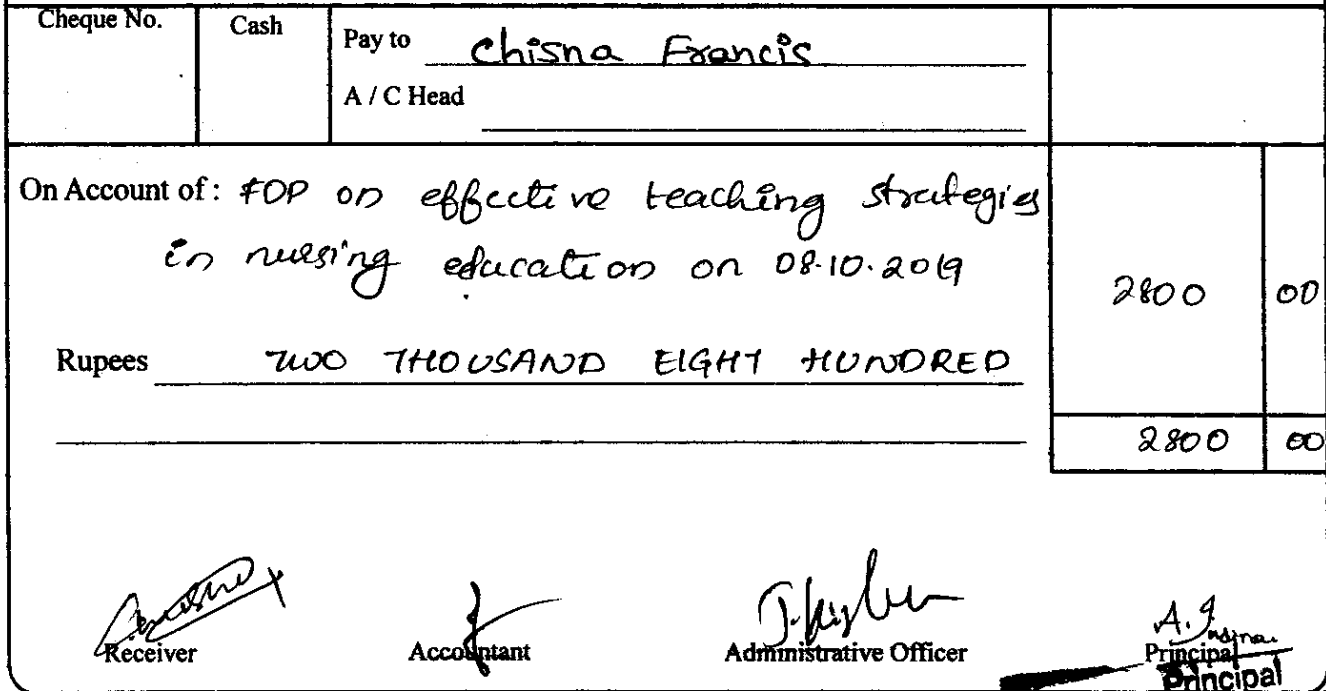 Cheque No. Cash Pay to Chisna Francis
A / C Head
On Account of : FDP on effective teaching strategies
in nursing education on 08.10.2019
2800 00
Rupees TWO THOUSAND EIGHT HUNDRED
2800 00
Receiver Accountant Administrative Officer Principal
Principal